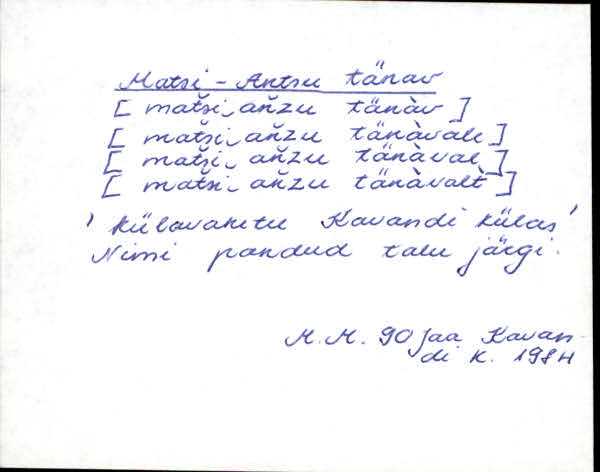 Matsi-Antsu tänav
[ matši‿ańzu tänàv ]
[ matši‿ańzu tänàvale ]
[ matši‿ańzu tänàval ]
[ matši‿ańzu tänàvalt̀ ]
' külavahetu Kavandi külas '
Nimi pandud talu järgi.
M.M. 90 Jaa Kavan-
di k. 1984